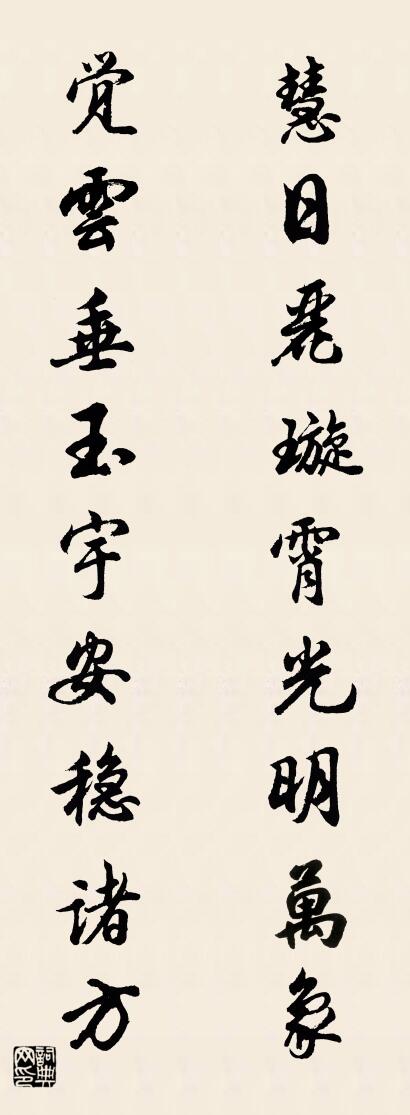 慧日麗璇霄光明萬象
覚雲垂玉宇安穏诸方
詞典网印